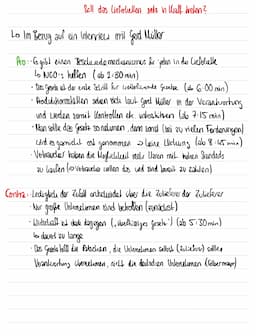 Soll das Lieferketten in Kraft treten?
↳ Im Bezug auf ein Interview mit Gerd Müller
Pro: - Es gibt einen Beschwerdemechanismus für in der Lieferkette
↳ NGO's helfen (ab 2:30 min)
- Das Gesetz ist der erste Schritt für Gesetze (ab 6:00 min)
- sehen sich laut Gerd Müller in der Verantwortung
und werden somit Kontrollen etc. unterstützen (ab 7:15 min)
- Man sollte das Gesetz so nehmen, denn sonst (bei zu vielen Forderungen)
wird es garnicht erst genommen → keine Wirkung (ab 8:45 min)
- Verbraucher haben die Möglichkeit mehr Waren mit hohen Standards
zu kaufen (→ Verbraucher sollen das und sind bereit zu zahlen)
Contra: - Lediglich der Zufall entscheidet über die Zulieferer der Zulieferer
- Nur große Unternehmen sind betroffen (zunächst)
- Wirtschaft ist stark dagegen ( Gesetz") (ab 5:30 min)
↳ dauert zu lange
- Das Gesetz soll die Unternehmen selbst (Zulieferer) sollen
Verantwortung übernehmen, nicht die deutschen Unternehmen